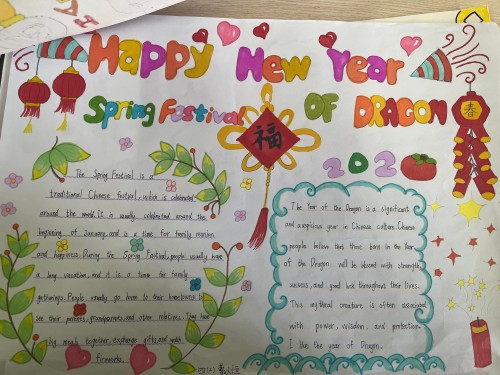 Happy New Year
Spring Festival OF DRAGON
福
春
202
The Spring Festival is a
traditional Chinese festival, which is celebrated
around the world. It is usually celebrated around the
beginning of January, and is a time for family reunion
and happiness. During the Spring Festival, people usually have
a long vacation, and it is a time for family
gatherings. People usually go home to their hometowns to
see their parents, grandparents and other relatives. They have
big meals together, exchange gifts and watch
fireworks.
The Year of the Dragon is a significant
and auspicious year in Chinese culture. Chinese
people believe that those born in the Year
of the Dragon will be blessed with strength,
success, and good luck throughout their lives.
This mythical creature is often associated
with power, wisdom, and protection.
I like the year of Dragon.